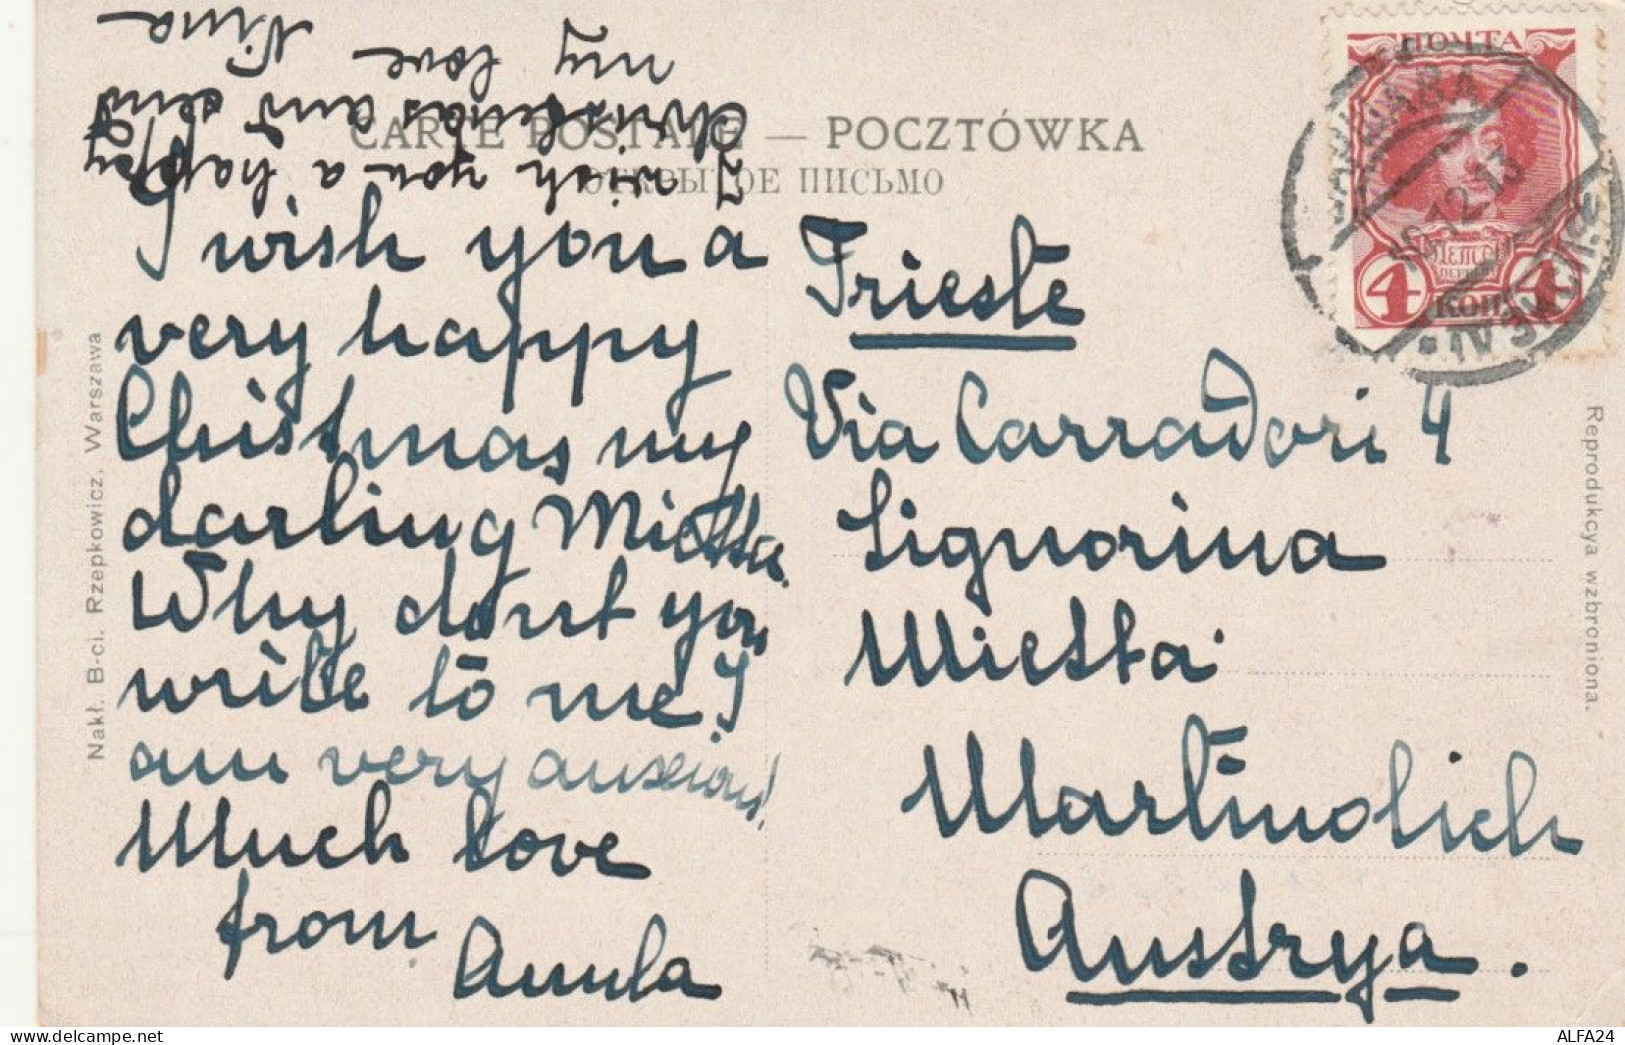 I wish you a happy
Christmas and send
my love Nina
CARTE POSTALE — POCZTÓWKA
ОТКРЫТОЕ ПИСЬМО
I wish you a
very happy
Christmas my
darling Mietta.
Why dont you
write to me? I
am very anxious!
Much love
from
Trieste
Via Carradori 4
Signorina
Mietta
Martinolich
Austrya.
ПОЧТА
4 КОП 4
12.13
Nakł. B-ci. Rzepkowicz, Warszawa
Reprodukcya wzbroniona.
ALFA24